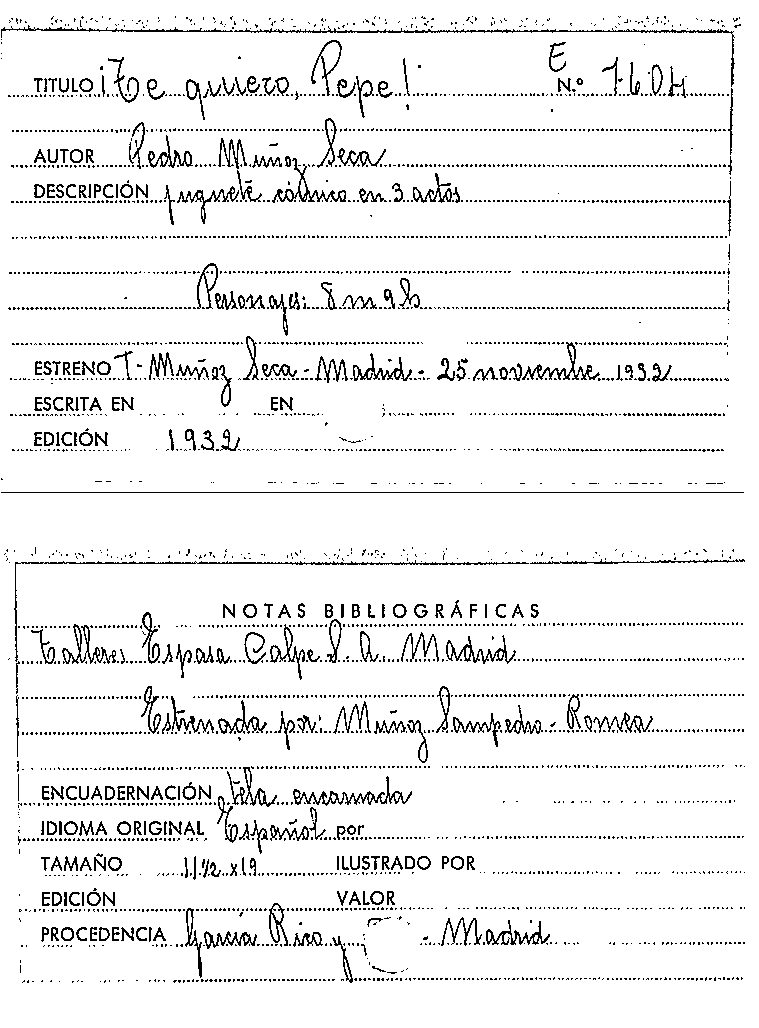 E
TITULO ¡Te quiero, Pepe! N.º 7604
AUTOR Pedro Muñoz Seca
DESCRIPCIÓN juguete cómico en 3 actos
Personajes: 8 m 9 h
ESTRENO T- Muñoz Seca - Madrid - 25 noviembre 1932
ESCRITA EN EN
EDICIÓN 1932
NOTAS BIBLIOGRÁFICAS
Talleres Espasa Calpe S. A. Madrid
Estrenada por: Muñoz Sampedro - Romea
ENCUADERNACIÓN tela encarnada
IDIOMA ORIGINAL Español por
TAMAÑO 11 1/2 x 19 ILUSTRADO POR
EDICIÓN VALOR
PROCEDENCIA García Rico y - Madrid